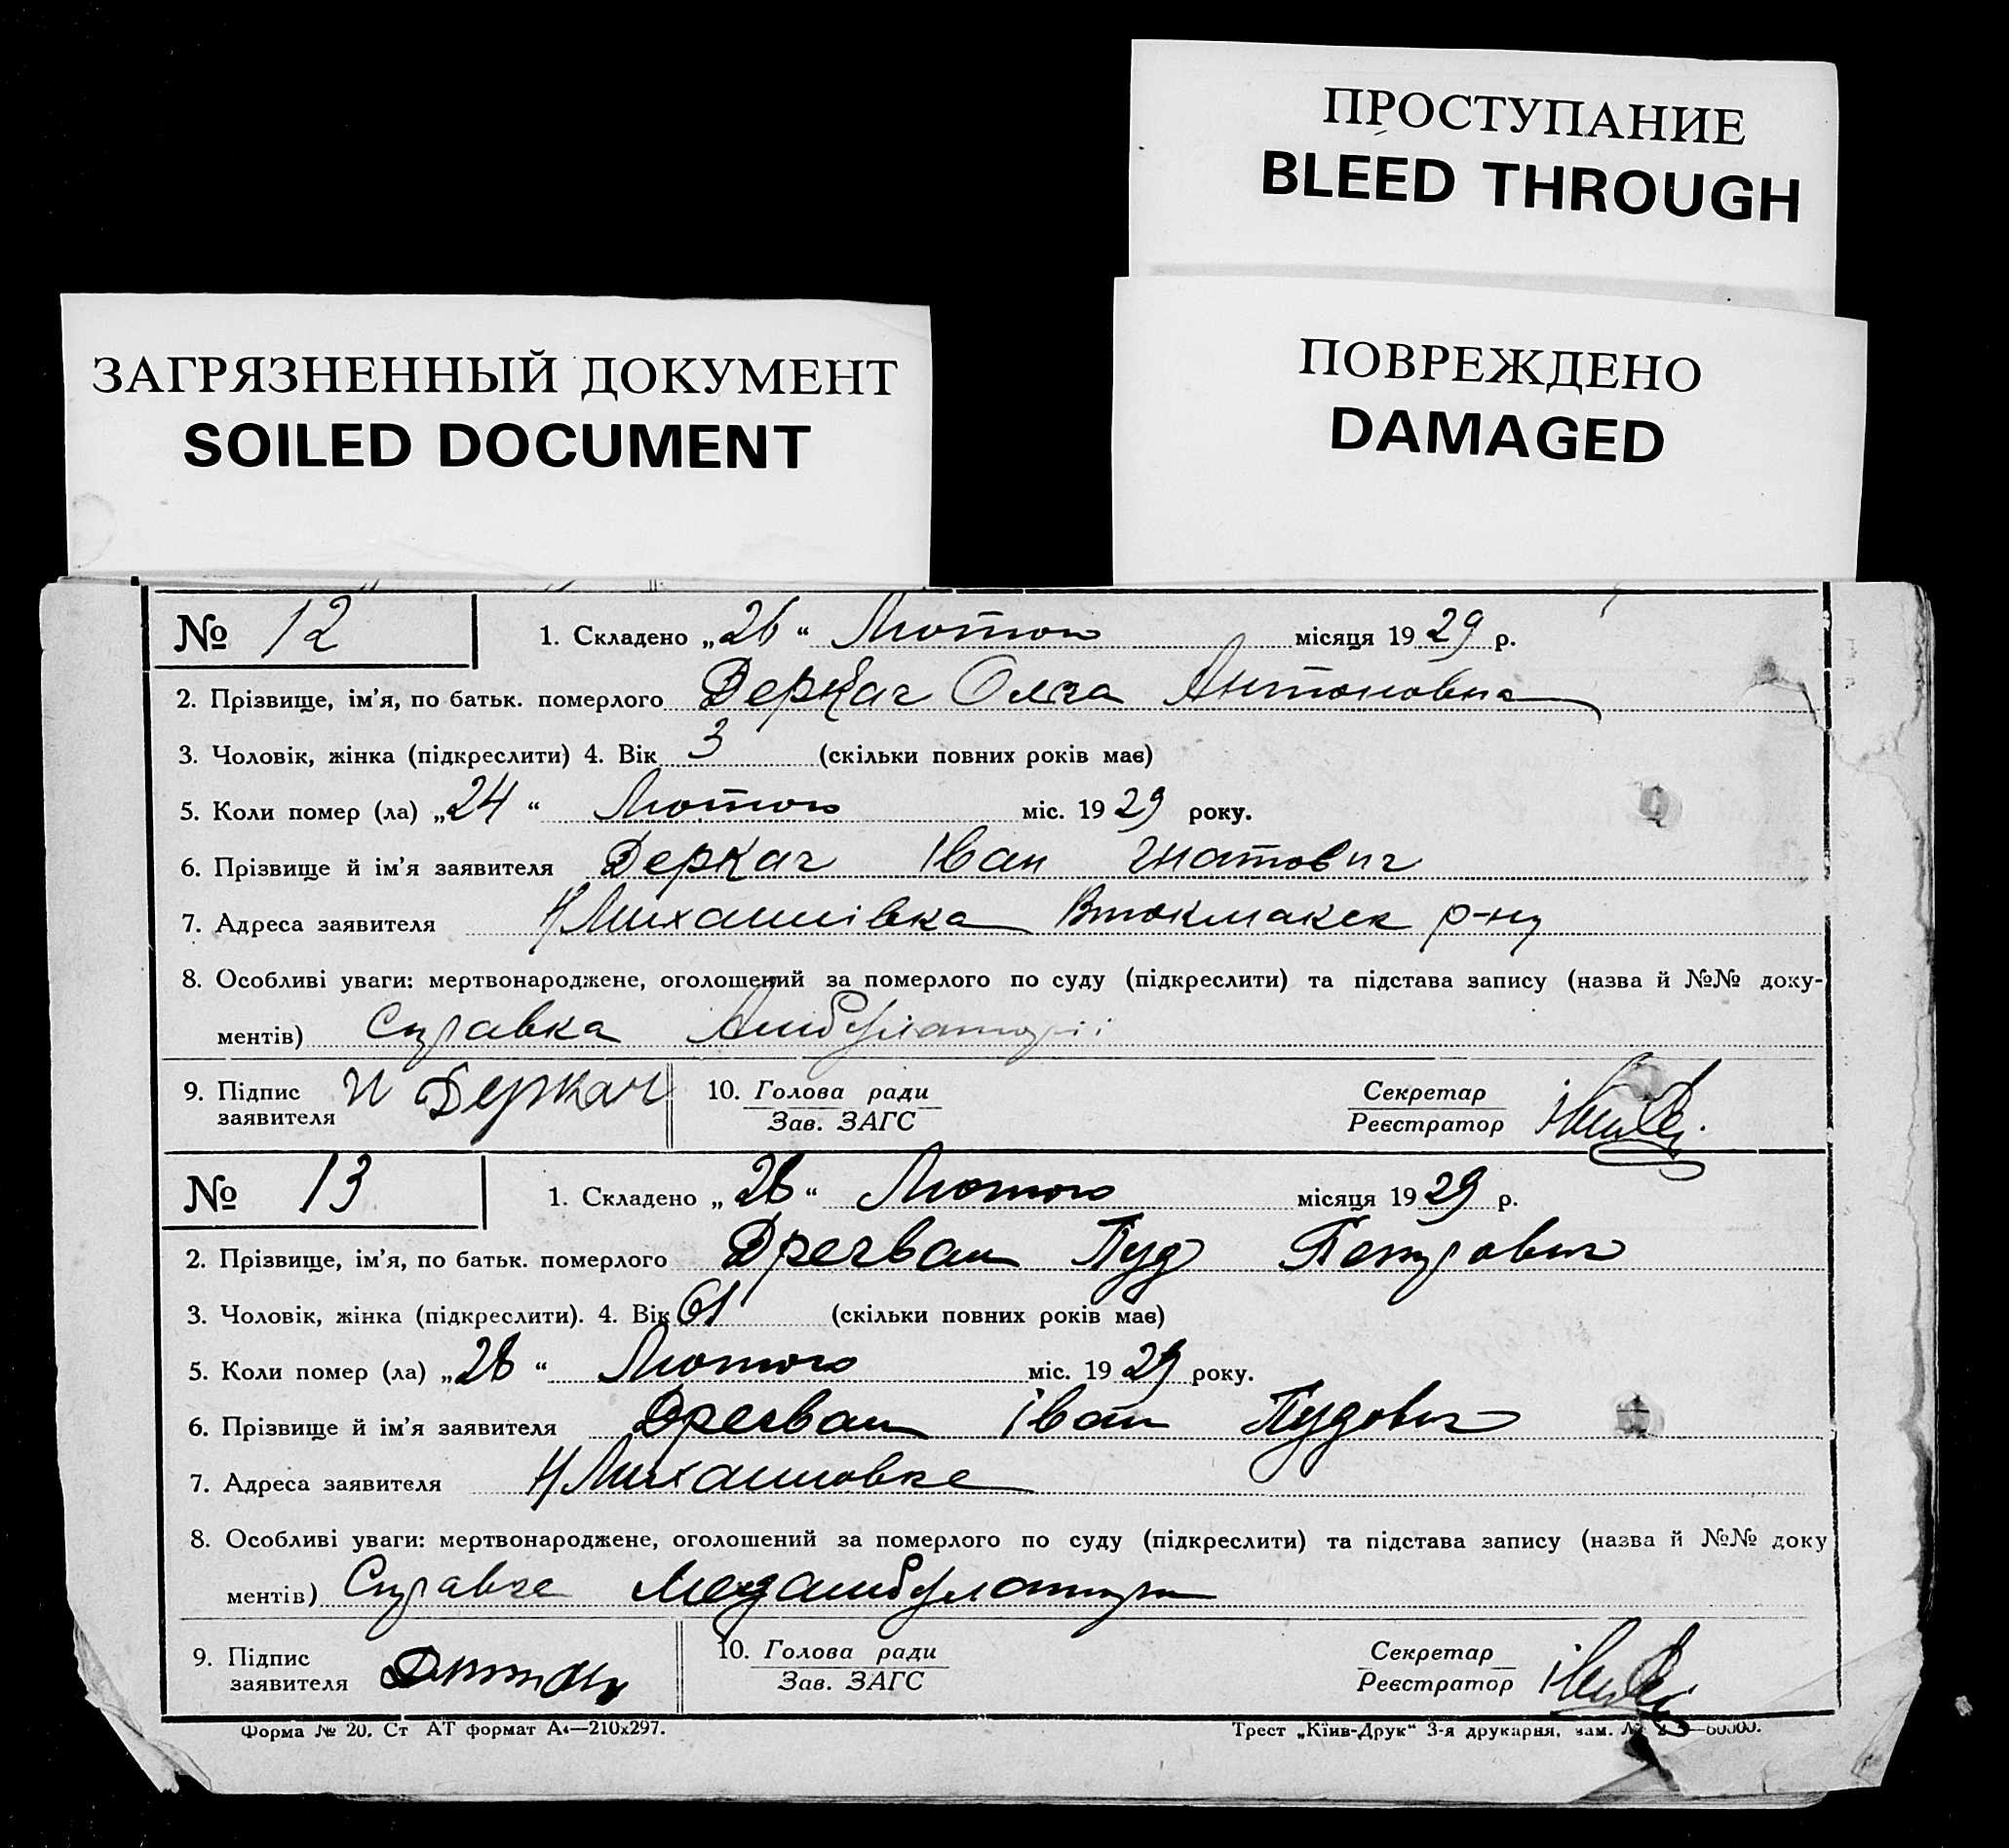 ПРОСТУПАНИЕ
BLEED THROUGH
ЗАГРЯЗНЕННЫЙ ДОКУМЕНТ
SOILED DOCUMENT
ПОВРЕЖДЕНО
DAMAGED
№ 12 1. Складено „26“ Лютого місяця 1929 р.
2. Прізвище, ім'я, по батьк. померлого Деркач Олга Антоновна
3. Чоловік, жінка (підкреслити) 4. Вік 3 (скільки повних років має)
5. Коли помер (ла) „24“ Лютого міс. 1929 року.
6. Прізвище й ім'я заявителя Деркач Іван Гнатович
7. Адреса заявителя Н Михайлівка р-ну
8. Особливі уваги: мертвонароджене, оголошений за померлого по суду (підкреслити) та підстава запису (назва й №№ доку-
ментів) Справка Амбулаторії
9. Підпис заявителя И Деркач 10. Голова ради Зав. ЗАГС Секретар Реєстратор
№ 13 1. Складено „28“ Лютого місяця 1929 р.
2. Прізвище, ім'я, по батьк. померлого Дречван Пуд Петрович
3. Чоловік, жінка (підкреслити). 4. Вік 61 (скільки повних років має)
5. Коли помер (ла) „28“ Лютого міс. 1929 року.
6. Прізвище й ім'я заявителя Дречван Іван Пудович
7. Адреса заявителя Н Михайловка
8. Особливі уваги: мертвонароджене, оголошений за померлого по суду (підкреслити) та підстава запису (назва й №№ доку
ментів) Справка Медамбулатори
9. Підпис заявителя 10. Голова ради Зав. ЗАГС Секретар Реєстратор
Форма № 20. Ст АТ формат А4—210x297.
Трест „Київ-Друк“ 3-я друкарня, зам. —60000.